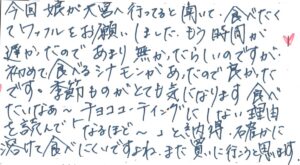 今回娘が大宮へ行ってると聞いて、食べたくて
ワッフルをお願いしました。もう時間が
遅かったのであまり無かったらしいのですが
初めて食べるシナモンがあったので良かった
です。季節ものがとても気になります 食べ
たいなぁ〜 チョココーティングにしない理由
を読んで「なるほど〜」と納得。確かに
溶けて食べにくいですよね。また買いに行こうと思います